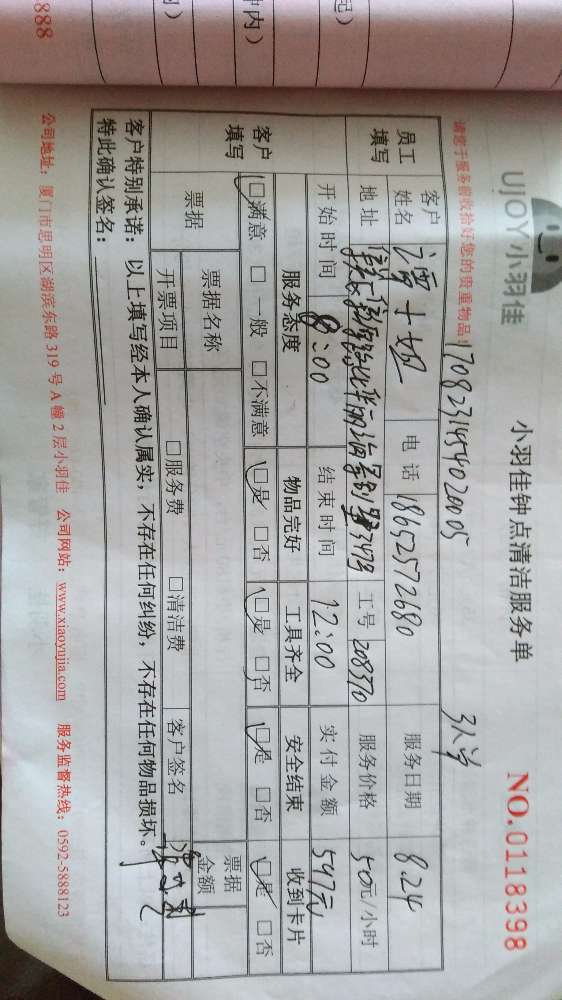 888
时)
钟内)
起)
UJOY小羽佳
小羽佳钟点清洁服务单
NO.0118398
请您于服务前收拾好您的贵重物品!
1708231454020005
3人单
员工填写
客户姓名
潘女妮
电话
18652572680
服务日期
8.24
地址
工号
208370
服务价格
50元/小时
开始时间
8:00
结束时间
12:00
实付金额
547元
客户填写
服务态度
物品完好
工具齐全
安全结束
收到卡片
□满意 □一般 □不满意
□是 □否
□是 □否
□是 □否
□是 □否
票据
票据名称
票据金额
开票项目
□服务费 □清洁费
客户签名
客户特别承诺:以上填写经本人确认属实,不存在任何纠纷,不存在任何物品损坏。
特此确认签名:
公司地址:厦门市思明区湖滨东路319号A幢2层小羽佳 公司网站:www.xiaoyujia.com 服务监督热线:0592-5888123